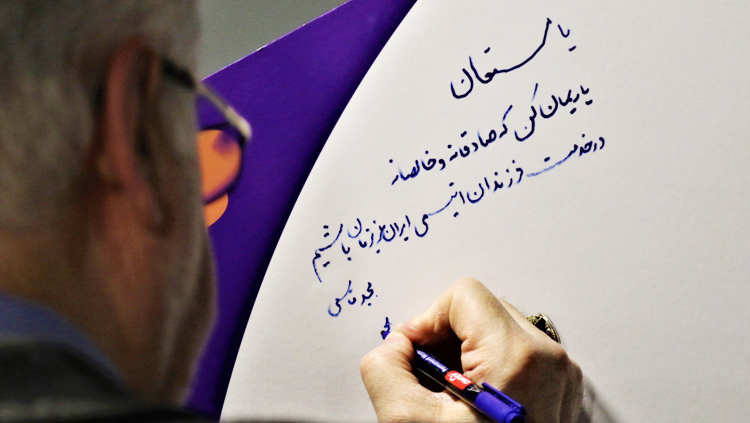 یا مستعان
یاریمان کن که صادقانه و خالصانه
در خدمت فرزندان اتیسمی ایران عزیزمان باشیم
مجد قاسمی